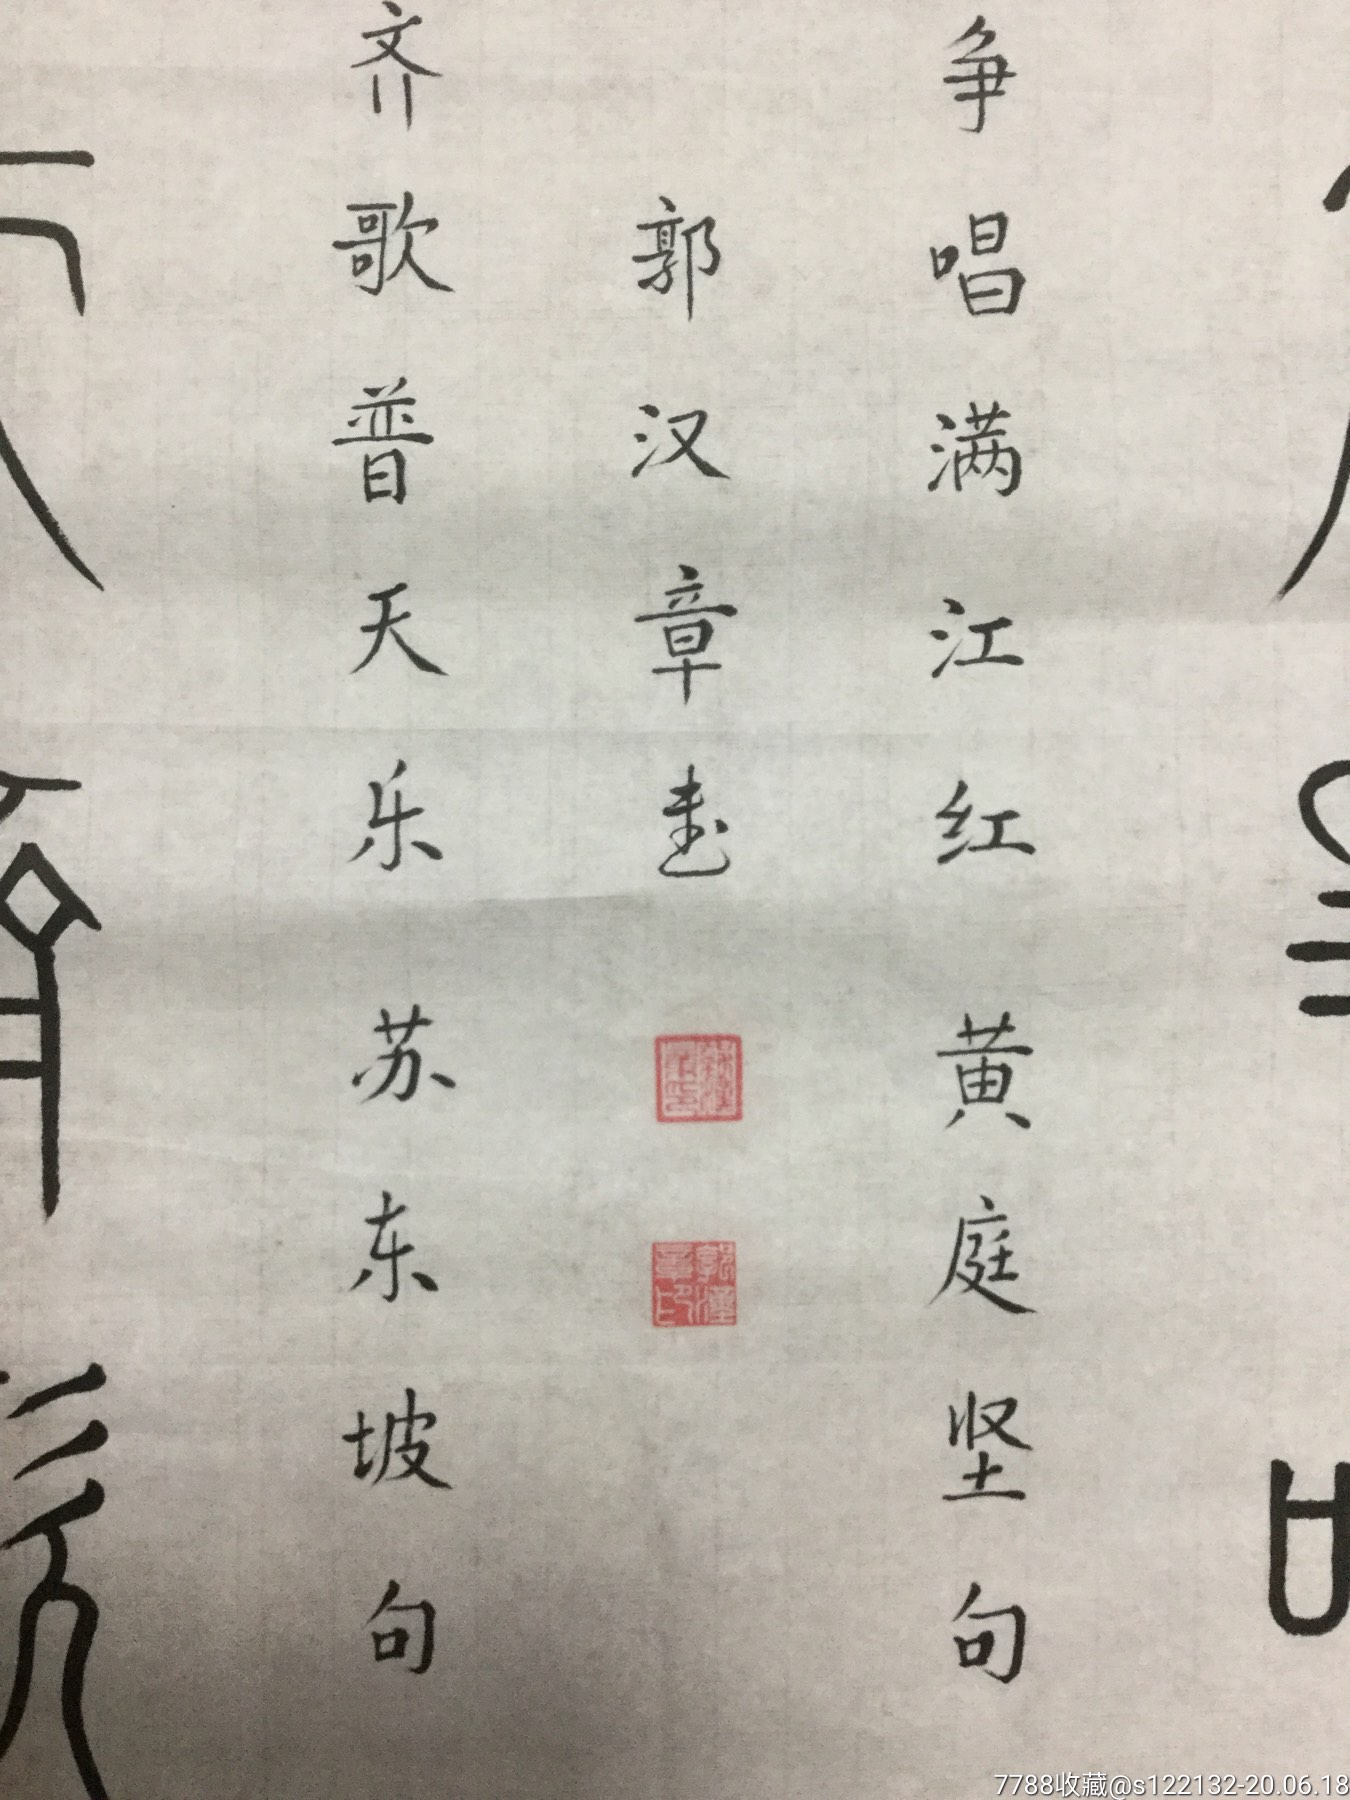 争唱满江红 黄庭坚句
郭汉章书
齐歌普天乐 苏东坡句
郭汉章印
7788收藏@s122132-20.06.18